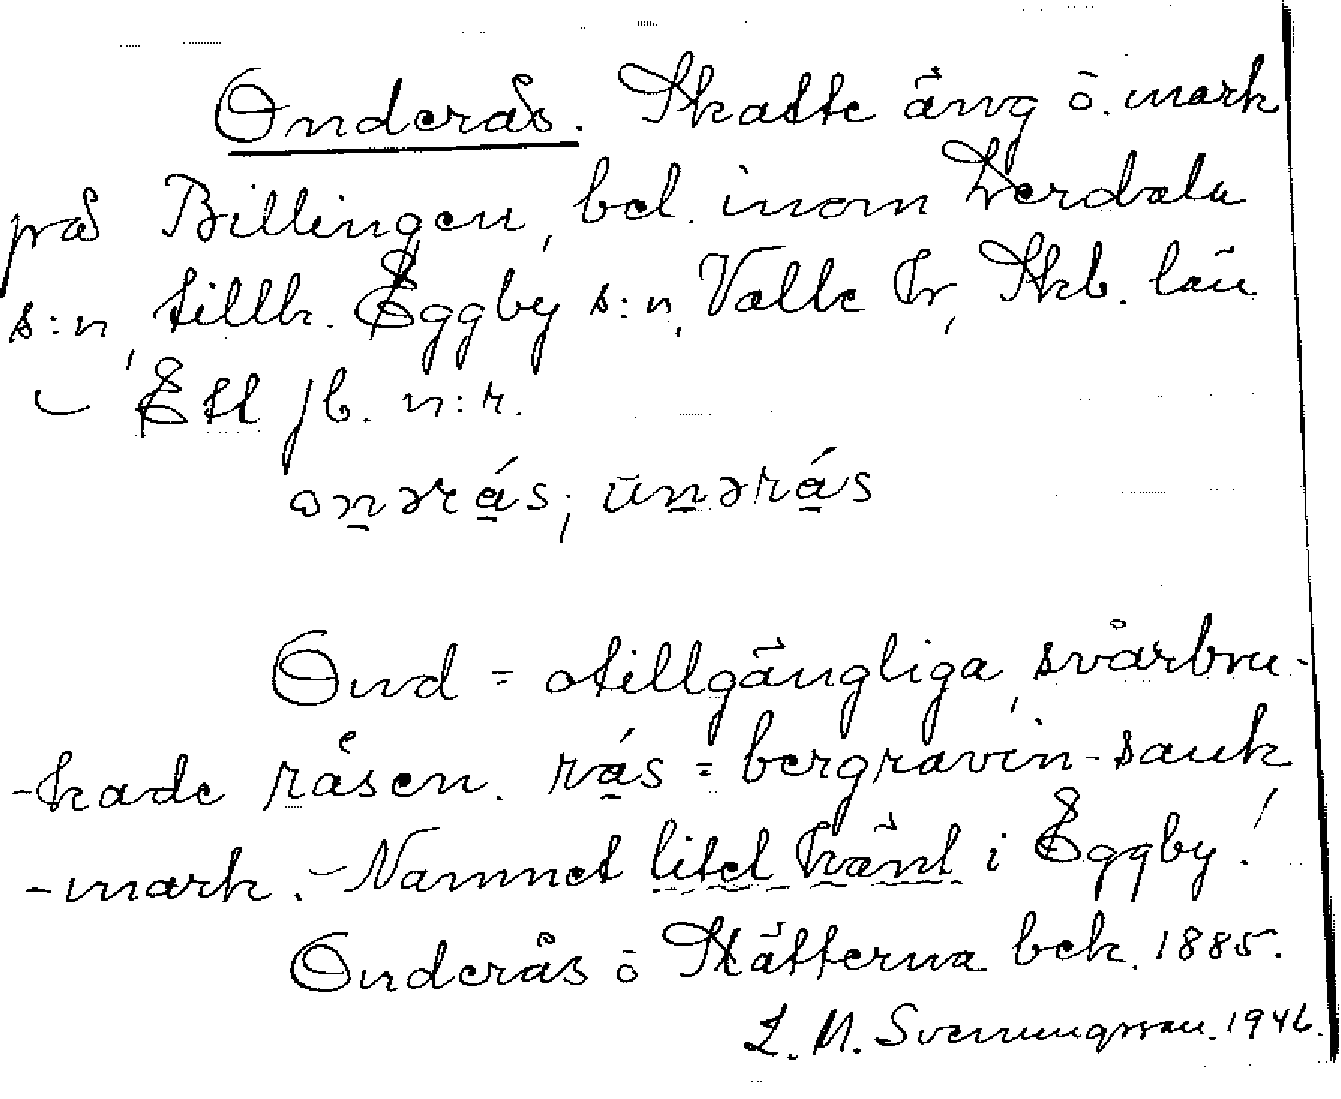 Onderås. Skatte äng ö. mark
på Billingen, bel. inom Kerdala
s:n, tillh. Eggby s:n, Valle hr, Skb. län
– Ett jb. n:r.
onərás; ūnərás
Ond = otillgängliga, svårbru-
-kade råsen. rás = bergravin-sank
-mark. – Namnet litet känt i Eggby!
Onderås ö Stätterna bek. 1885.
L. M. Svenungsson. 1946.